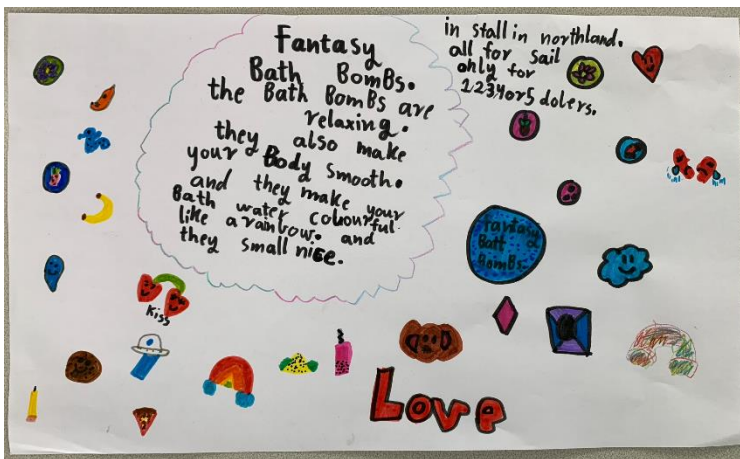 Fantasy
Bath BomBs.
the Bath BomBs are
relaxing.
they also make
your Body smooth.
and they make your
Bath water colourful
like a rainbow. and
they small nice.
in stall in northland.
all for sail
only for
1 2 3 4 or 5 dolers.
fantasy
Batt
BomBs.
Kiss
Love